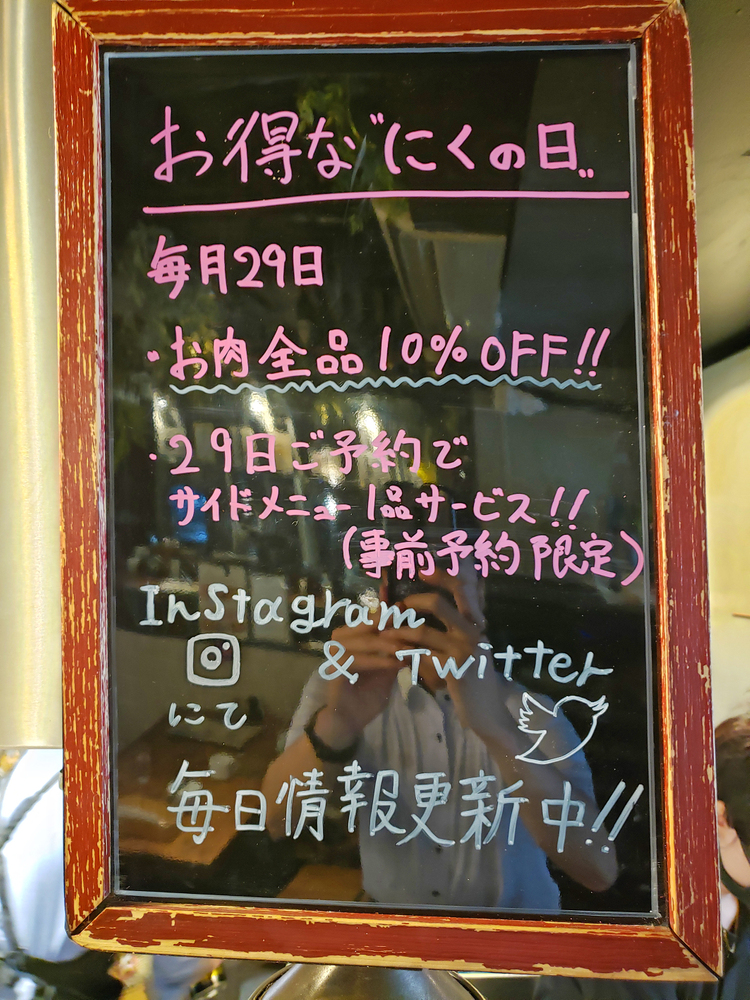 お得な〝にくの日〟
毎月29日
・お肉全品10% OFF!!
・29日ご予約で
サイドメニュー1品サービス!!
(事前予約限定)
Instagram
& Twitter
にて
毎日情報更新中!!